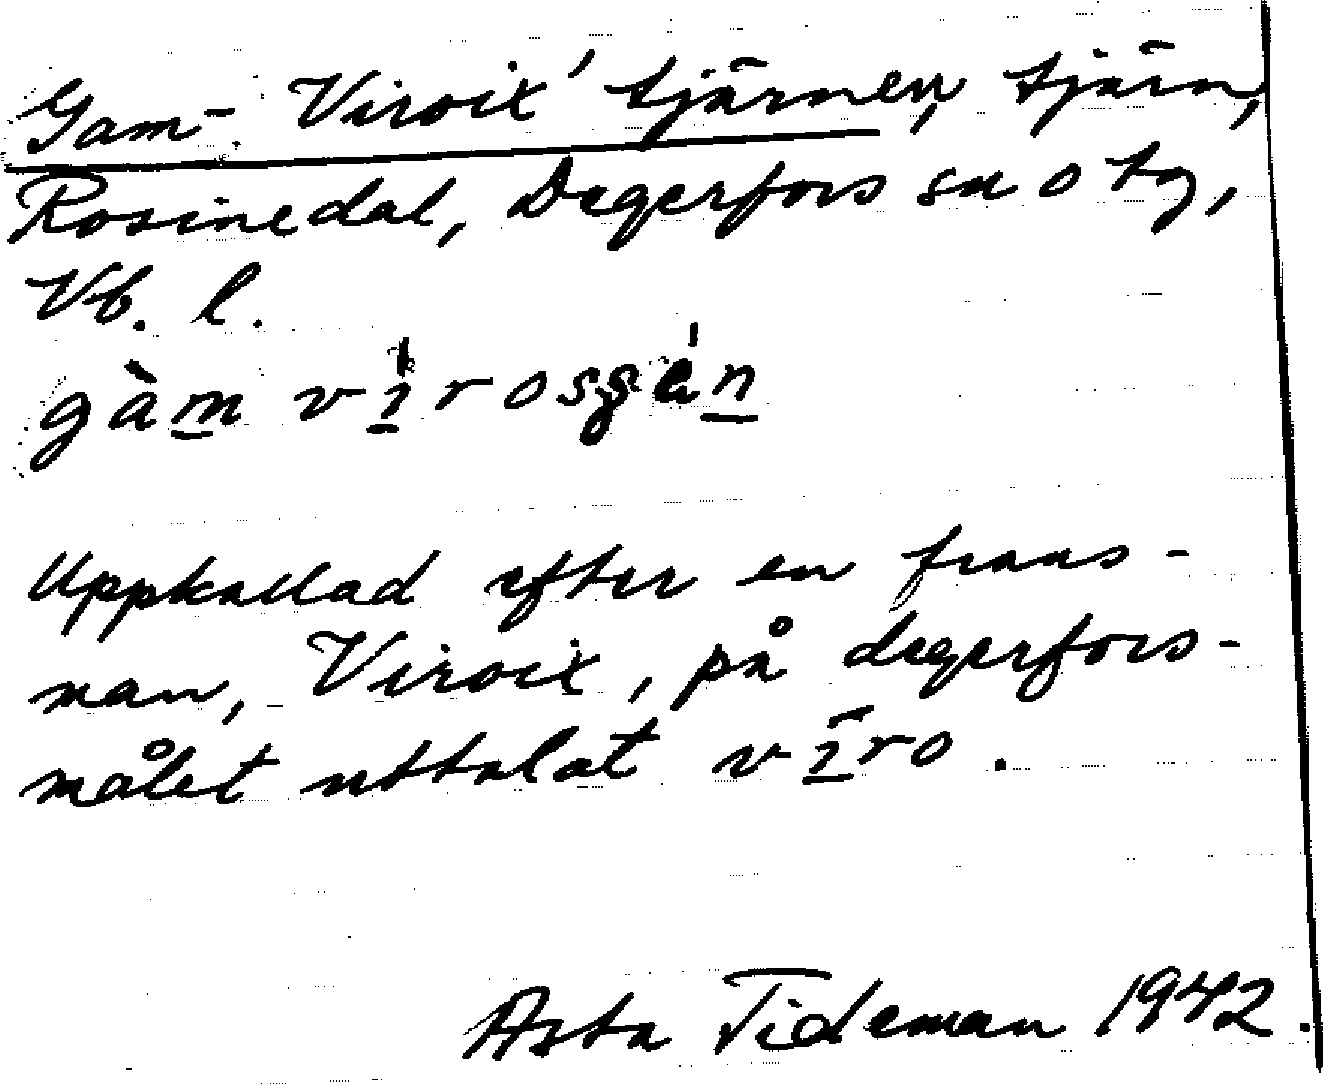 Gam- Viroix' tjärnen, tjärn,
Rosinedal, Degerfors sn o tg,
Vb. l.
gàm vírosʂén
Uppkallad efter en frans-
man, Viroix, på degerfors-
målet uttalat vīro.
Asta Tideman 1942.